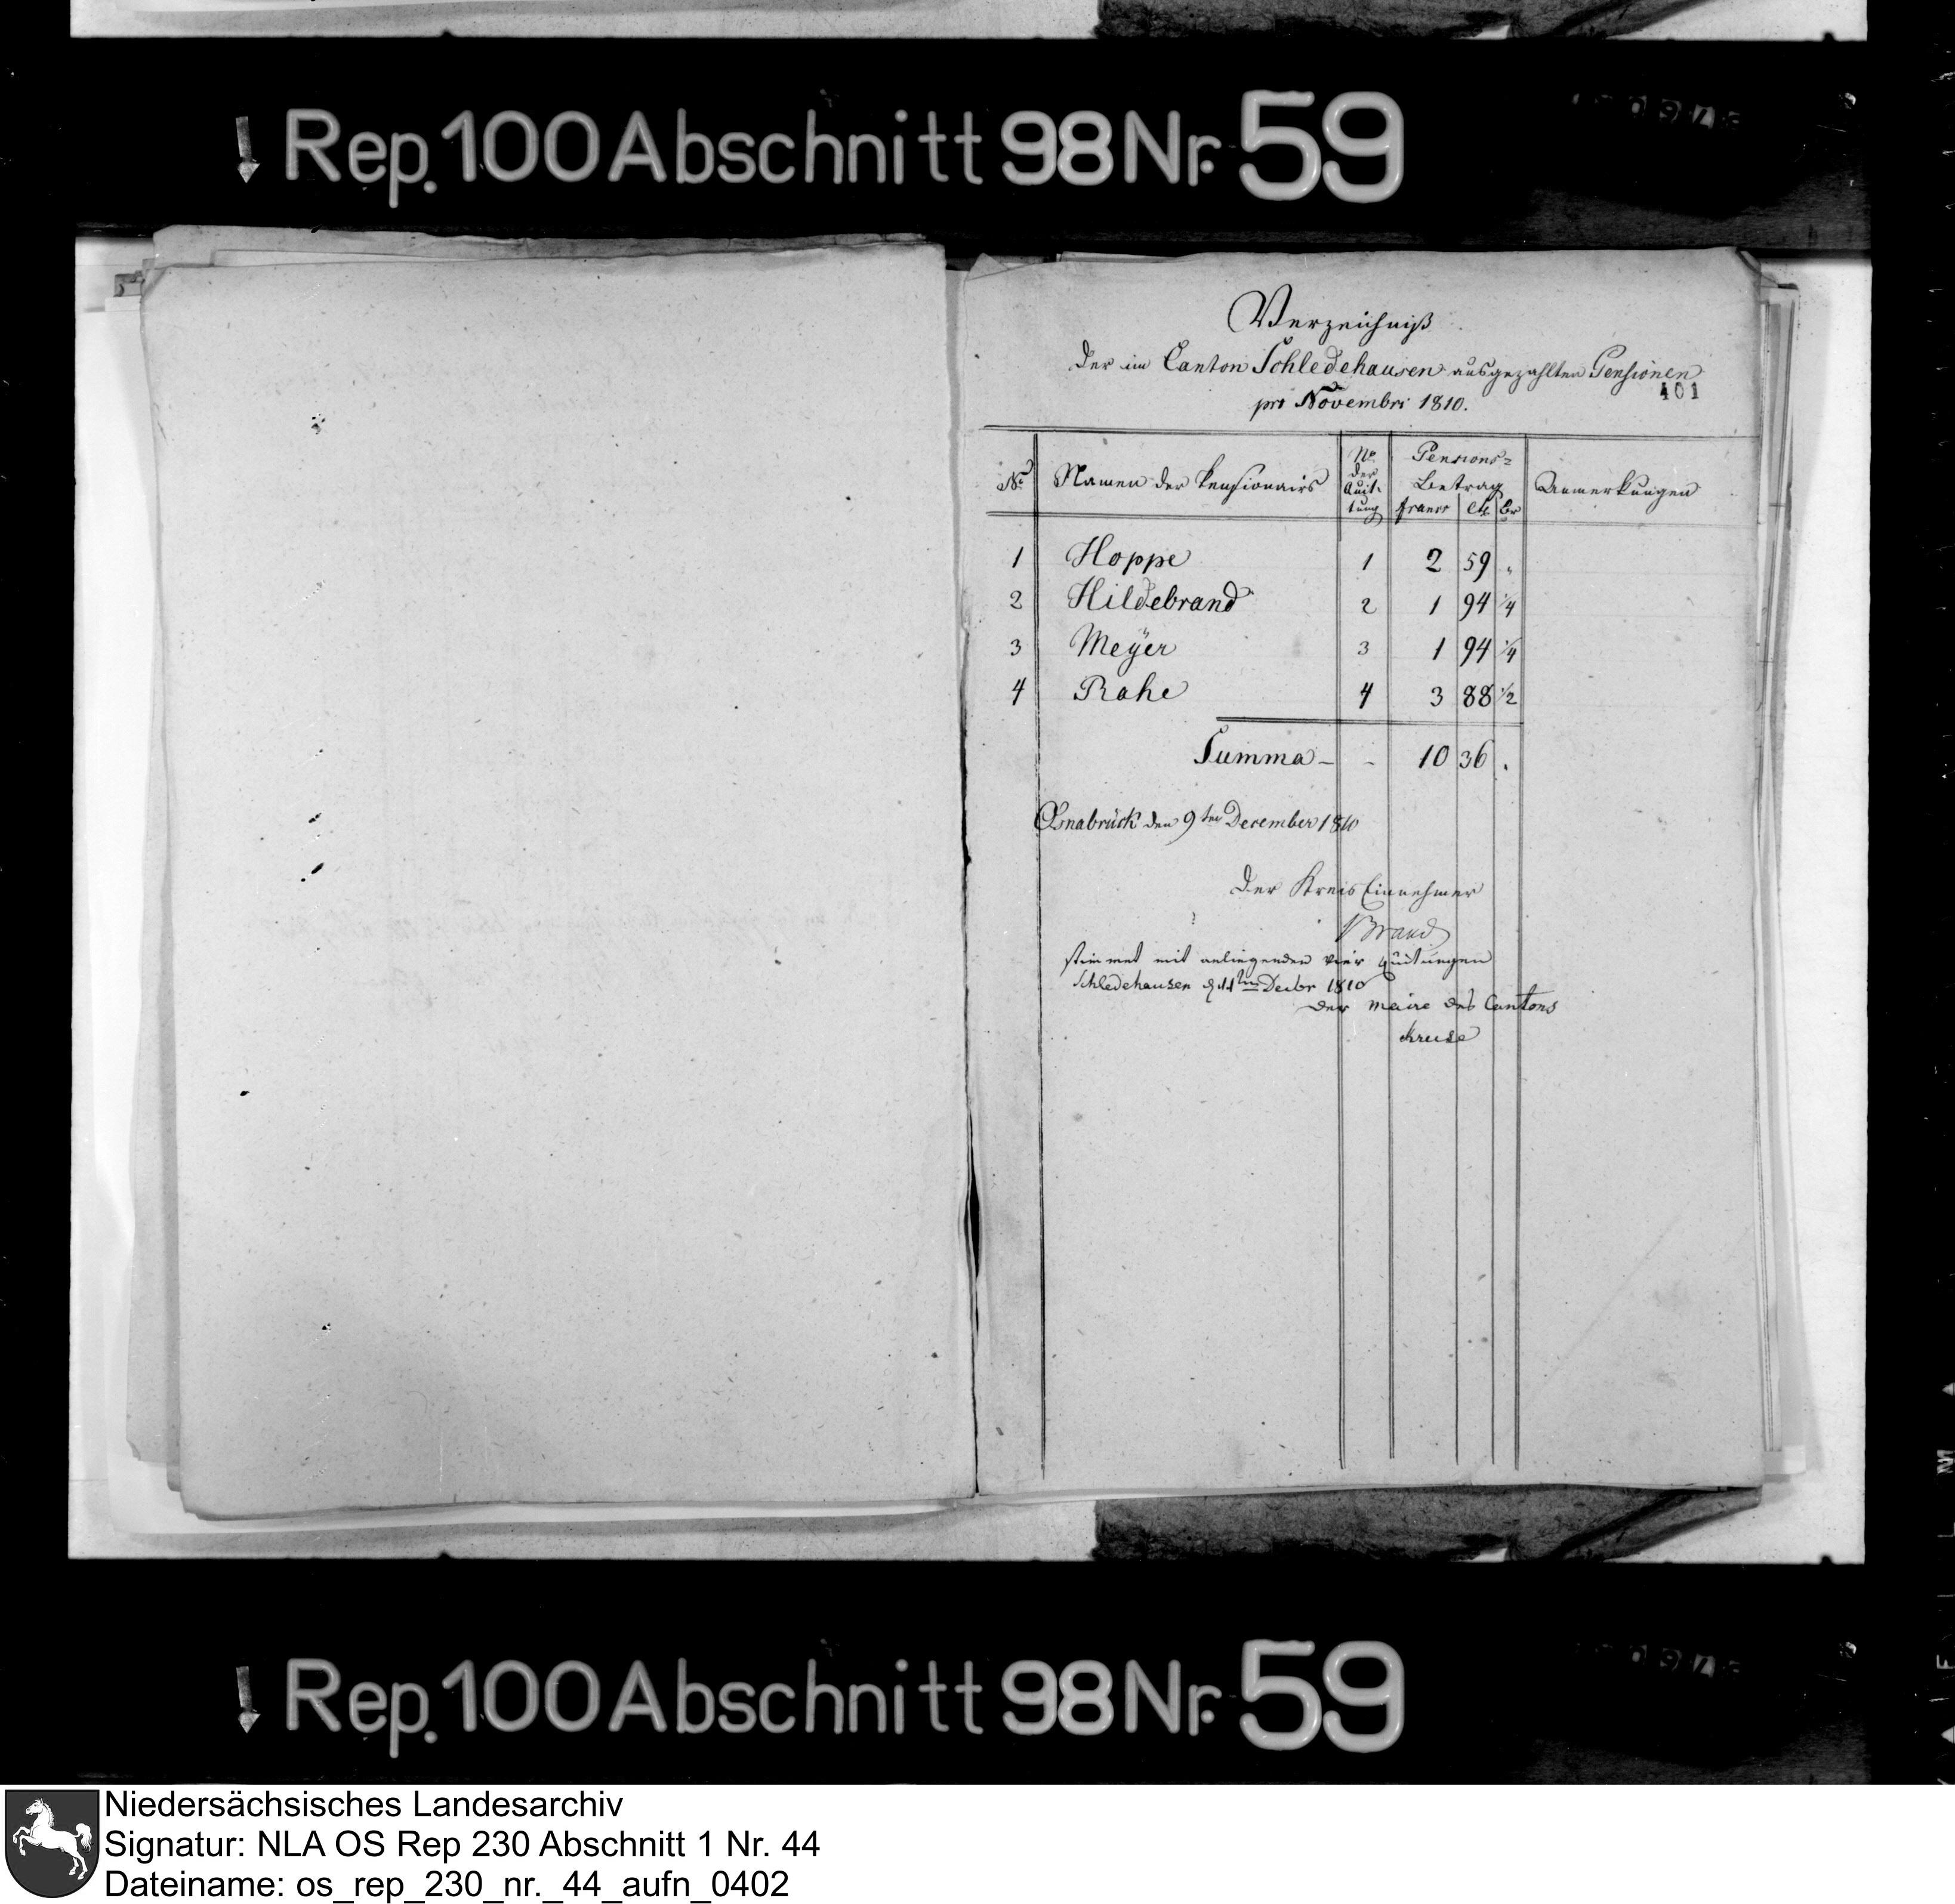 Rep. 100 Abschnitt 98 Nr. 59
Verzeichniß
der im Canton Schledehausen ausgezahlten Pensionen
401
pro Novembri 1810.
No Namen der Pensionairs No der Quit-tung Pensions= Betrag Anmerkungen
francs Ct. Br
1 Hoppe 1 2 59 "
2 Hildebrand 2 1 94 1/4
3 Meÿer 3 1 94 1/4
4 Rahe 4 3 88 1/2
Summa - - 10 36 .
Osnabrück den 9ten December 1810
Der Kreis Einnehmer
Brand
stimmet mit anliegenden vier Quitungen
Schledehausen d 11ten Decbr 1810
der Maire des Cantons
Kruse
Rep. 100 Abschnitt 98 Nr. 59
Niedersächsisches Landesarchiv
Signatur: NLA OS Rep 230 Abschnitt 1 Nr. 44
Dateiname: os_rep_230_nr._44_aufn_0402